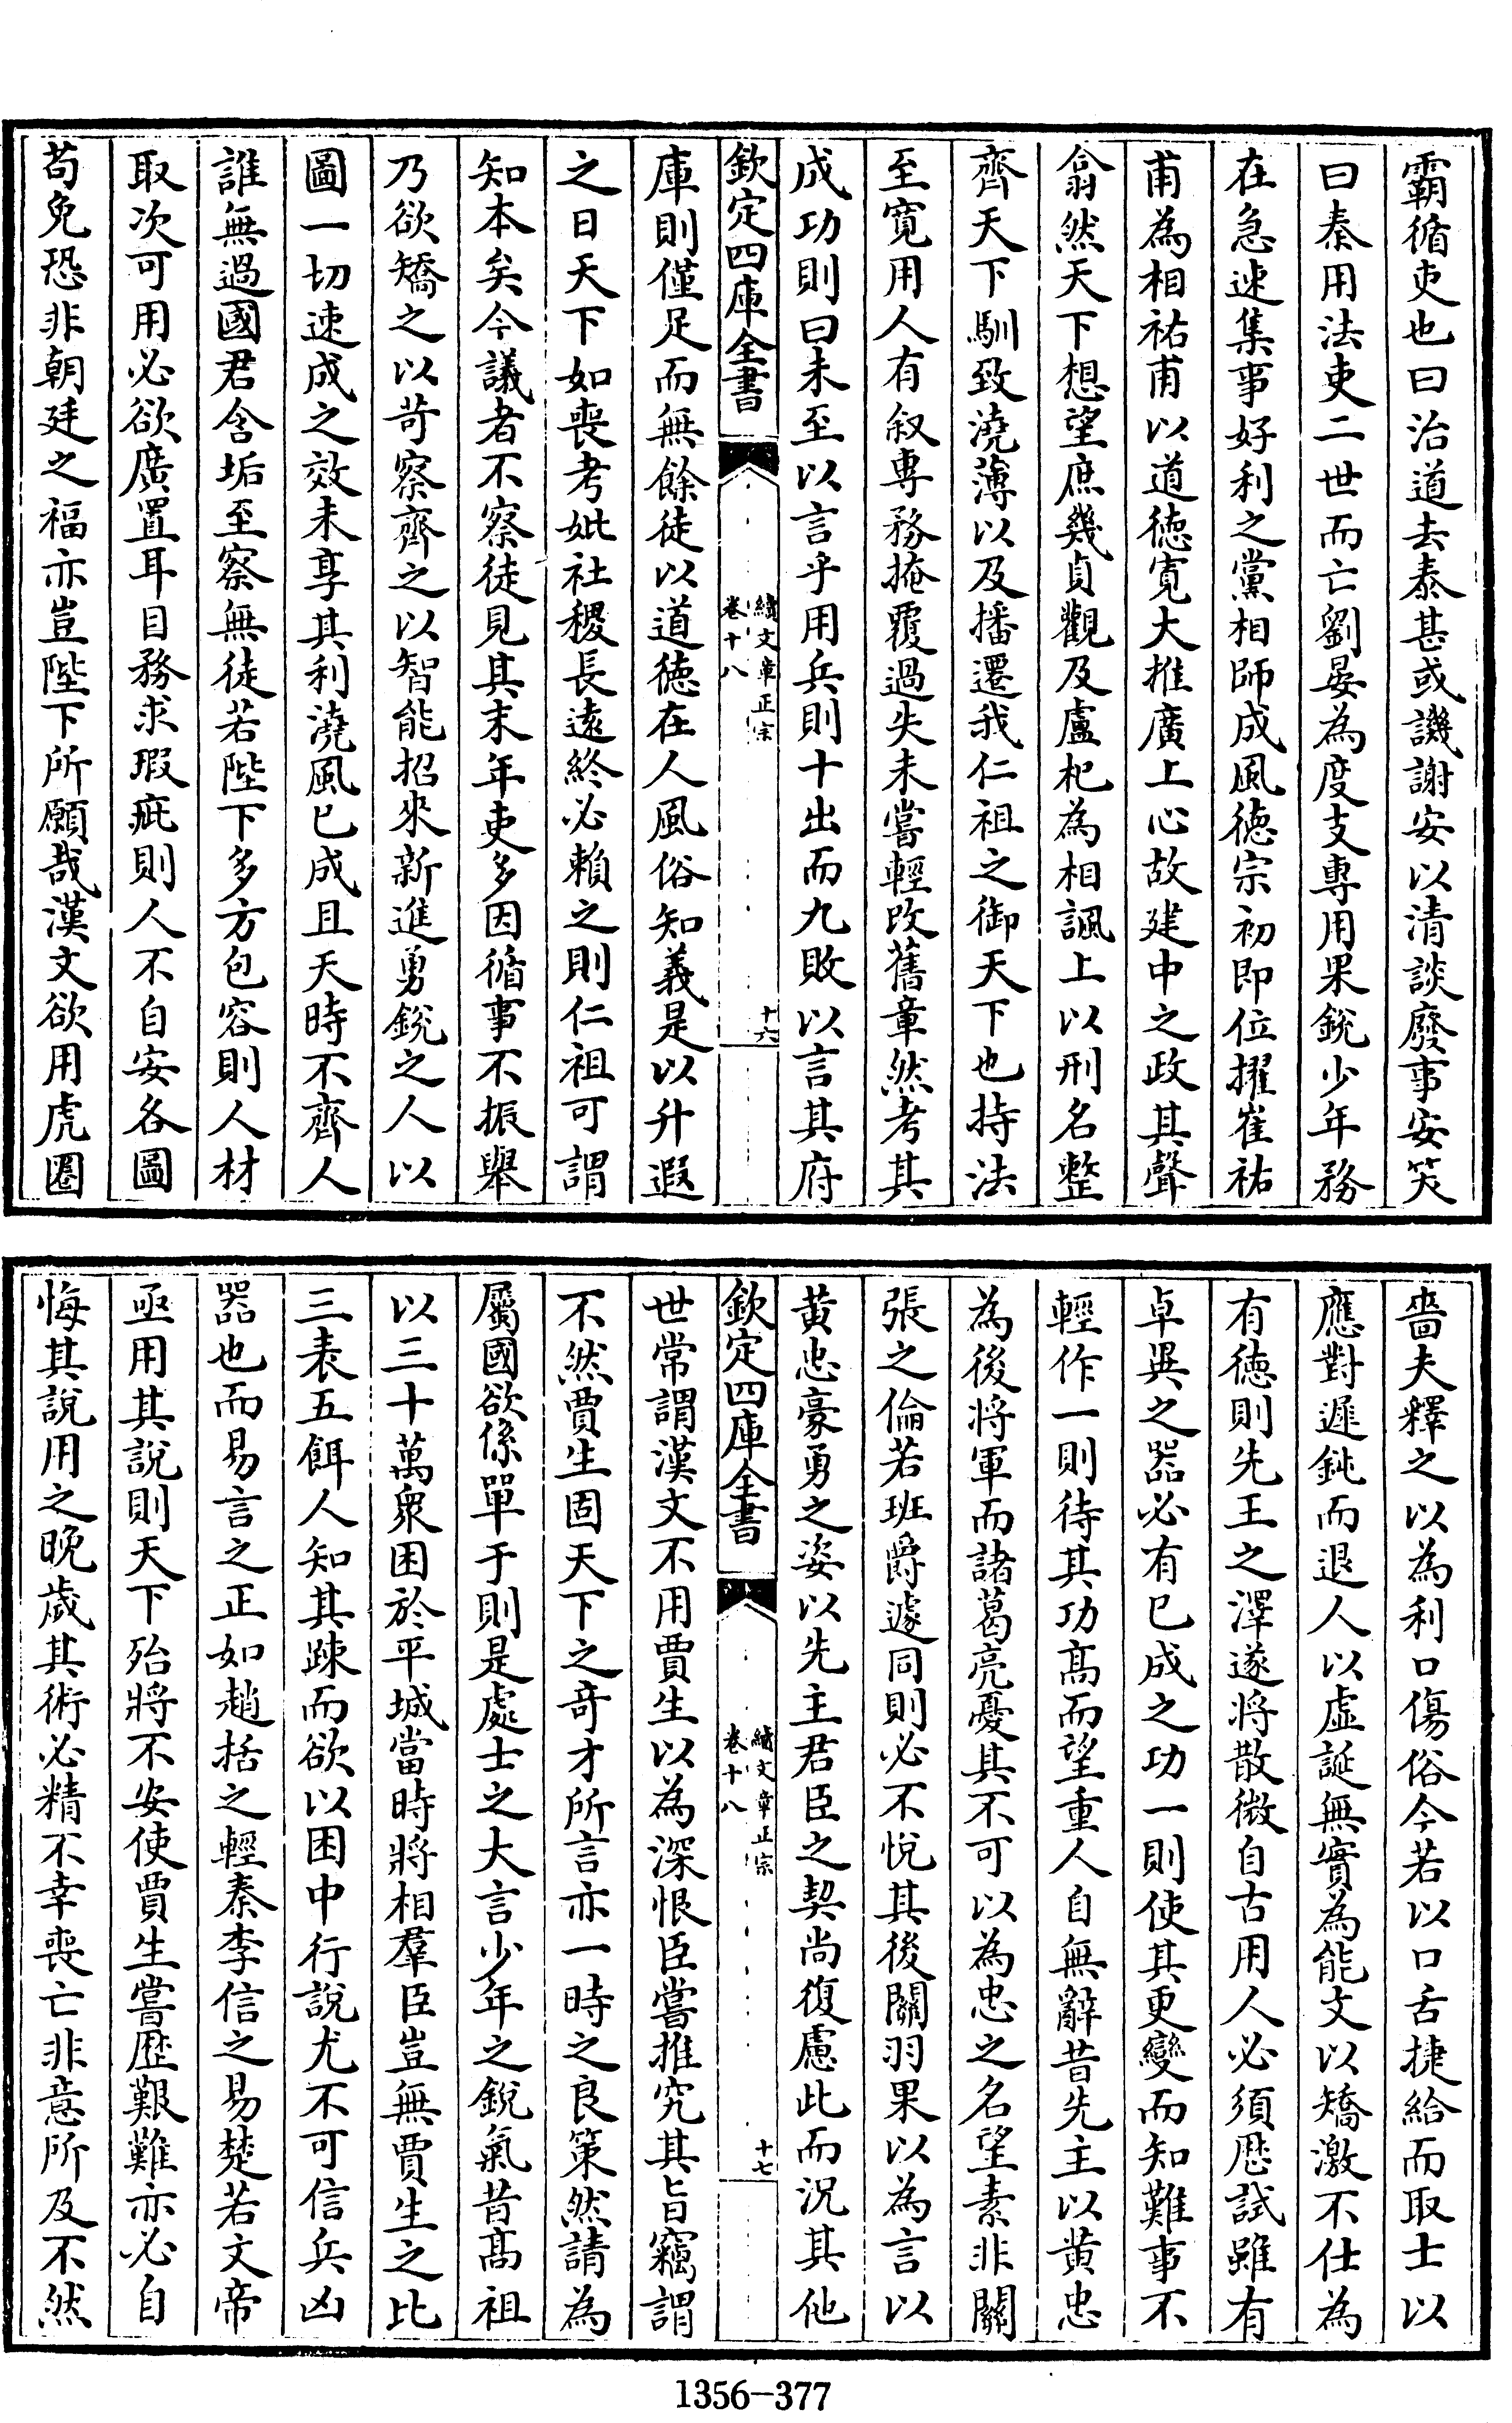 霸循吏也曰治道去泰甚或譏謝安以清談廢事安笑
曰秦用法吏二世而亡劉晏為度支專用果鋭少年務
在急速集事好利之黨相師成風徳宗初即位擢崔祐
甫為相祐甫以道徳寛大推廣上心故建中之政其聲
翕然天下想望庶幾貞觀及盧杞為相諷上以刑名整
齊天下馴致澆薄以及播遷我仁祖之御天下也持法
至寛用人有叙專務掩覆過失未嘗輕改舊章然考其
成功則曰未至以言乎用兵則十出而九敗以言其府
欽定四庫全書
續文章正宗
卷十八
十六
庫則僅足而無餘徒以道徳在人風俗知義是以升遐
之日天下如喪考妣社稷長逺終必賴之則仁祖可謂
知本矣今議者不察徒見其末年吏多因循事不振舉
乃欲矯之以苛察齊之以智能招來新進勇鋭之人以
圖一切速成之效未享其利澆風已成且天時不齊人
誰無過國君含垢至察無徒若陛下多方包容則人材
取次可用必欲廣置耳目務求瑕疵則人不自安各圖
苟免恐非朝廷之福亦豈陛下所願哉漢文欲用虎圈
嗇夫釋之以為利口傷俗今若以口舌捷給而取士以
應對遲鈍而退人以虛誕無實為能文以矯激不仕為
有徳則先王之澤遂將散微自古用人必須歴試雖有
卓異之器必有已成之功一則使其更變而知難事不
輕作一則待其功髙而望重人自無辭昔先主以黄忠
為後將軍而諸葛亮憂其不可以為忠之名望素非關
張之倫若班爵遽同則必不悅其後關羽果以為言以
黄忠豪勇之姿以先主君臣之契尚復慮此而況其他
欽定四庫全書
續文章正宗
卷十八
十七
世常謂漢文不用賈生以為深恨臣嘗推究其旨竊謂
不然賈生固天下之奇才所言亦一時之良策然請為
屬國欲係單于則是處士之大言少年之鋭氣昔髙祖
以三十萬衆困於平城當時將相羣臣豈無賈生之比
三表五餌人知其疎而欲以困中行說尤不可信兵凶
器也而易言之正如趙括之輕秦李信之易楚若文帝
亟用其說則天下殆將不安使賈生嘗歴艱難亦必自
悔其說用之晚歲其術必精不幸喪亡非意所及不然
1356-377